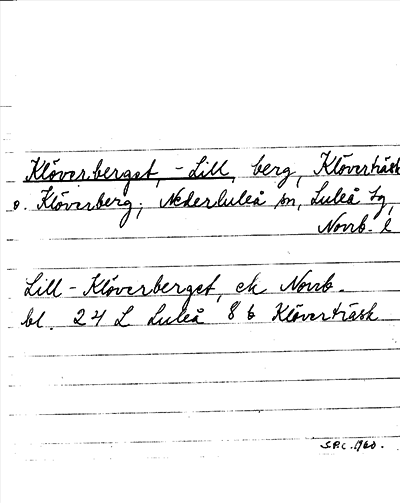 Klöverberget, -Lill, berg, Klöverträsk
o. Klöverberg; Nederluleå sn, Luleå tg,
Norrb. l
Lill-Klöverberget, ek Norrb.
bl. 24 L Luleå 8 b Klöverträsk
1960.